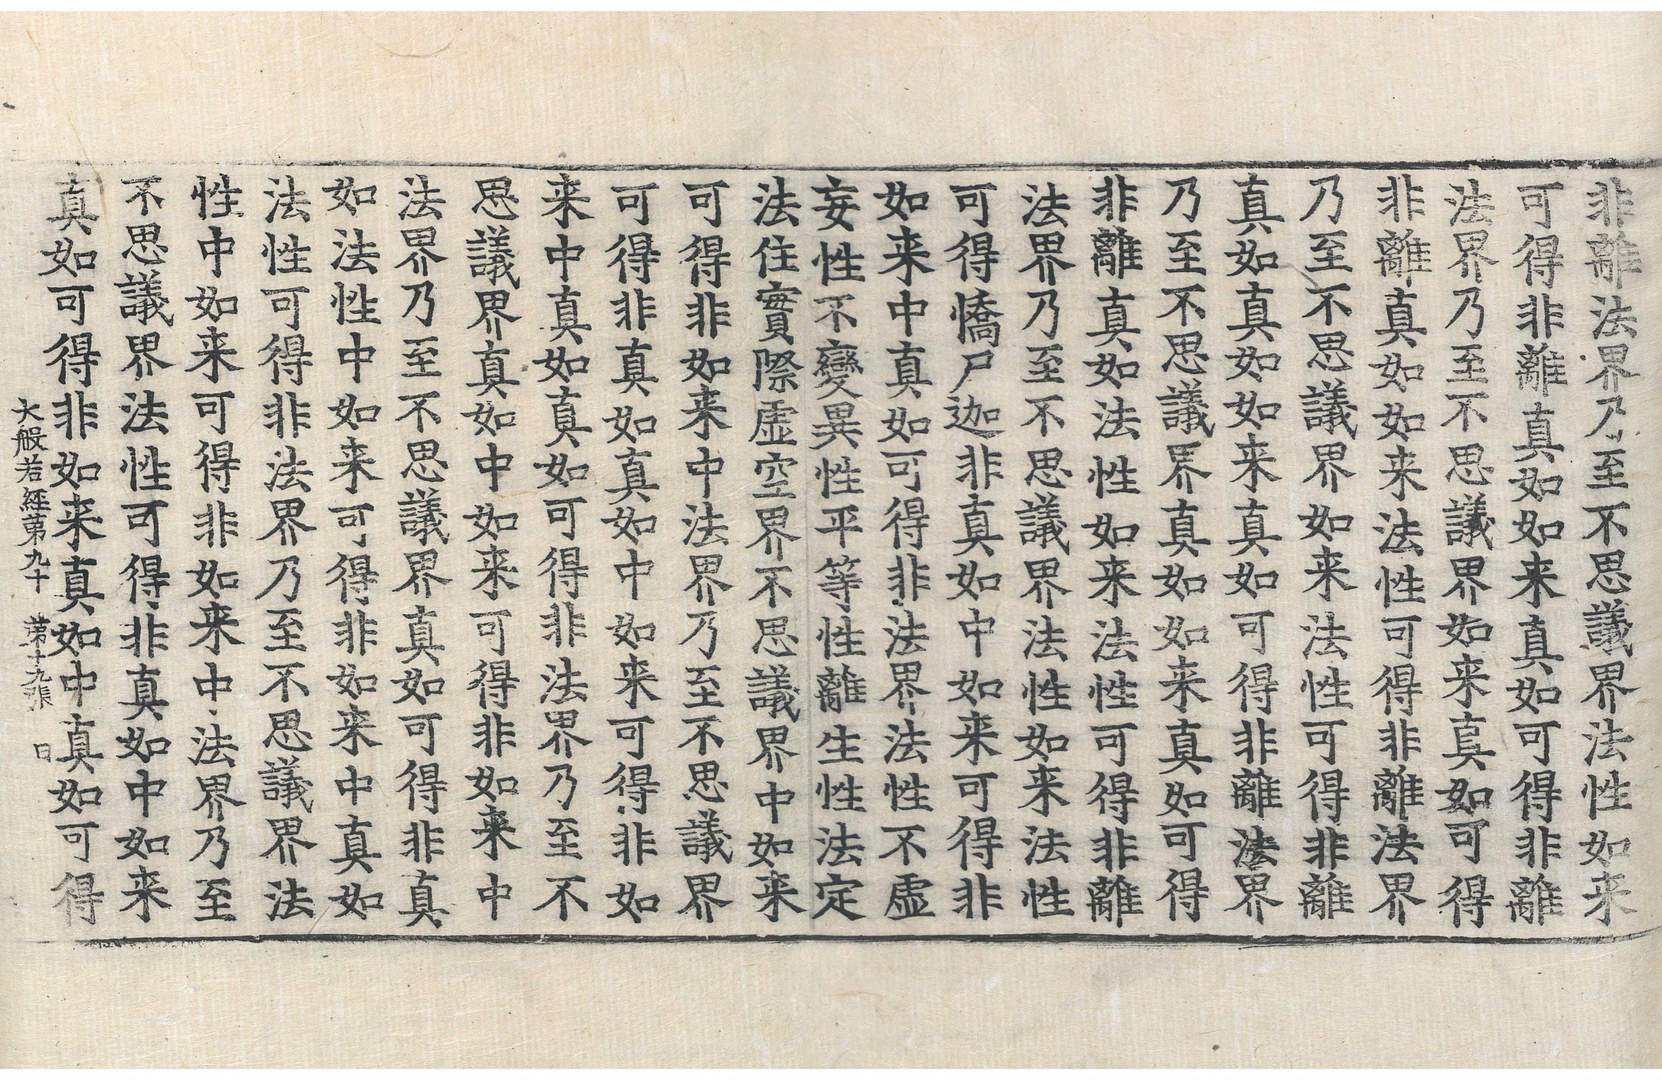 非離法界乃至不思議界法性如来
可得非離真如如来真如可得非離
法界乃至不思議界如来真如可得
非離真如如来法性可得非離法界
乃至不思議界如来法性可得非離
真如真如如来真如可得非離法界
乃至不思議界真如如来真如可得
非離真如法性如来法性可得非離
法界乃至不思議界法性如来法性
可得憍尸迦非真如中如来可得非
如来中真如可得非法界法性不虛
妄性不變異性平等性離生性法定
法住實際虛空界不思議界中如来
可得非如来中法界乃至不思議界
可得非真如真如中如来可得非如
来中真如真如可得非法界乃至不
思議界真如中如来可得非如来中
法界乃至不思議界真如可得非真
如法性中如来可得非如来中真如
法性可得非法界乃至不思議界法
性中如来可得非如来中法界乃至
不思議界法性可得非真如中如来
真如可得非如来真如中真如可得
大般若經第九十 第十九張 日